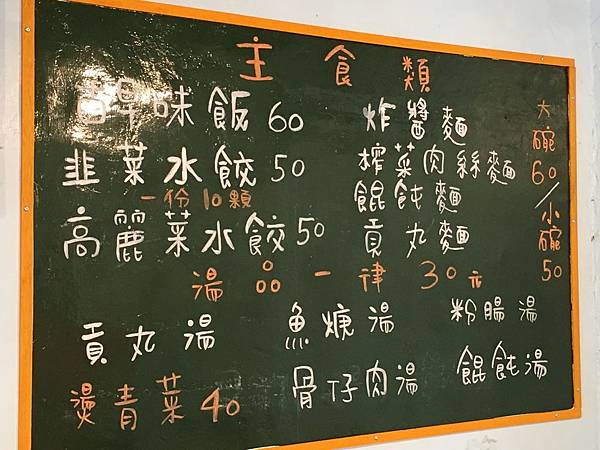 主食類
古早味飯60
韭菜水餃50
一份10顆
高麗菜水餃50
炸醬麵
榨菜肉絲麵
餛飩麵
貢丸麵
大碗60/小碗50
湯品一律30元
貢丸湯 魚焿湯 粉腸湯
燙青菜40 骨仔肉湯 餛飩湯